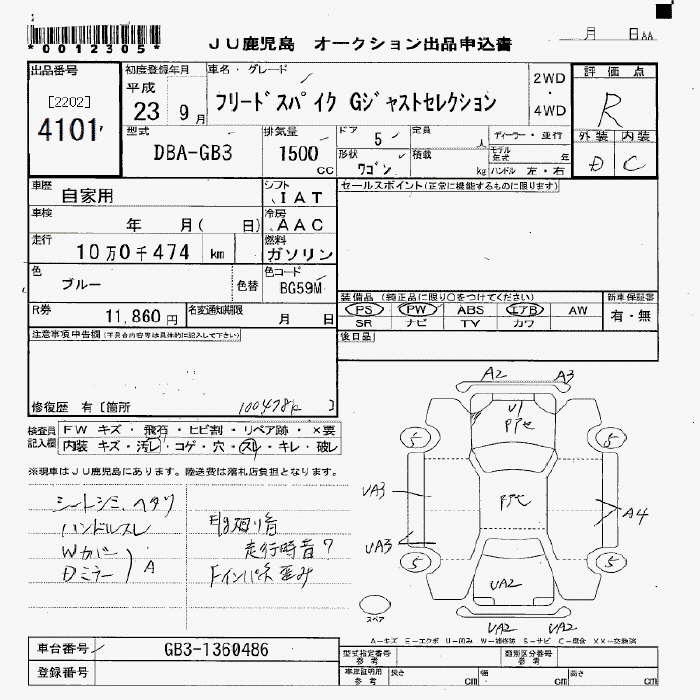 *0012305*
JU鹿児島 オークション出品申込書
月 日 AA
出品番号
[2202]
4101
初度登録年月
平成
23 9月
車名・グレード
フリードスパイク Gジャストセレクション
2WD
・
4WD
評価点
R
外装 内装
D C
型式
DBA-GB3
排気量
1500
CC
ドア 5
定員 人
ディーラー・並行
形状 ワゴン
積載 kg
モデル年式 年
ハンドル 左・右
車歴
自家用
シフト
IAT
セールスポイント(正常に機能するものに限ります)
車検
年 月( 日)
冷房
AAC
走行
10万0千474 km
燃料
ガソリン
色
ブルー
色替
色コード
BG59M
装備品 (純正品に限り○をつけてください)
新車保証書
PS PW ABS エアB AW
有・無
SR ナビ TV カワ
R券
11,860円
名変通知期限
月 日
後日品
注意事項申告欄
修復歴 有 [箇所
100478k ]
検査員
記入欄
FW キズ・飛石・ヒビ割・リペア跡・×要
内装 キズ・汚レ・コゲ・穴・スレ・キレ・破レ
※現車はJU鹿児島にあります。陸送費は落札店負担となります。
シートシミ、ヘタリ
ハンドルスレ
Wカバー
Dミラー
A
Eg廻り音
走行時音?
Fインパネ歪み
A2 A3
U1
5 5
UA3
A4
UA3
5 5
UA2
UA2 UA2
スペア
A-キズ E-エクボ U-凹み W-補修跡 S-サビ C-腐食 XX-交換済
車台番号
GB3-1360486
登録番号
型式指定番号
参考
類別区分番号
参考
車庫証明用
参考
長さ cm
幅 cm
高さ cm